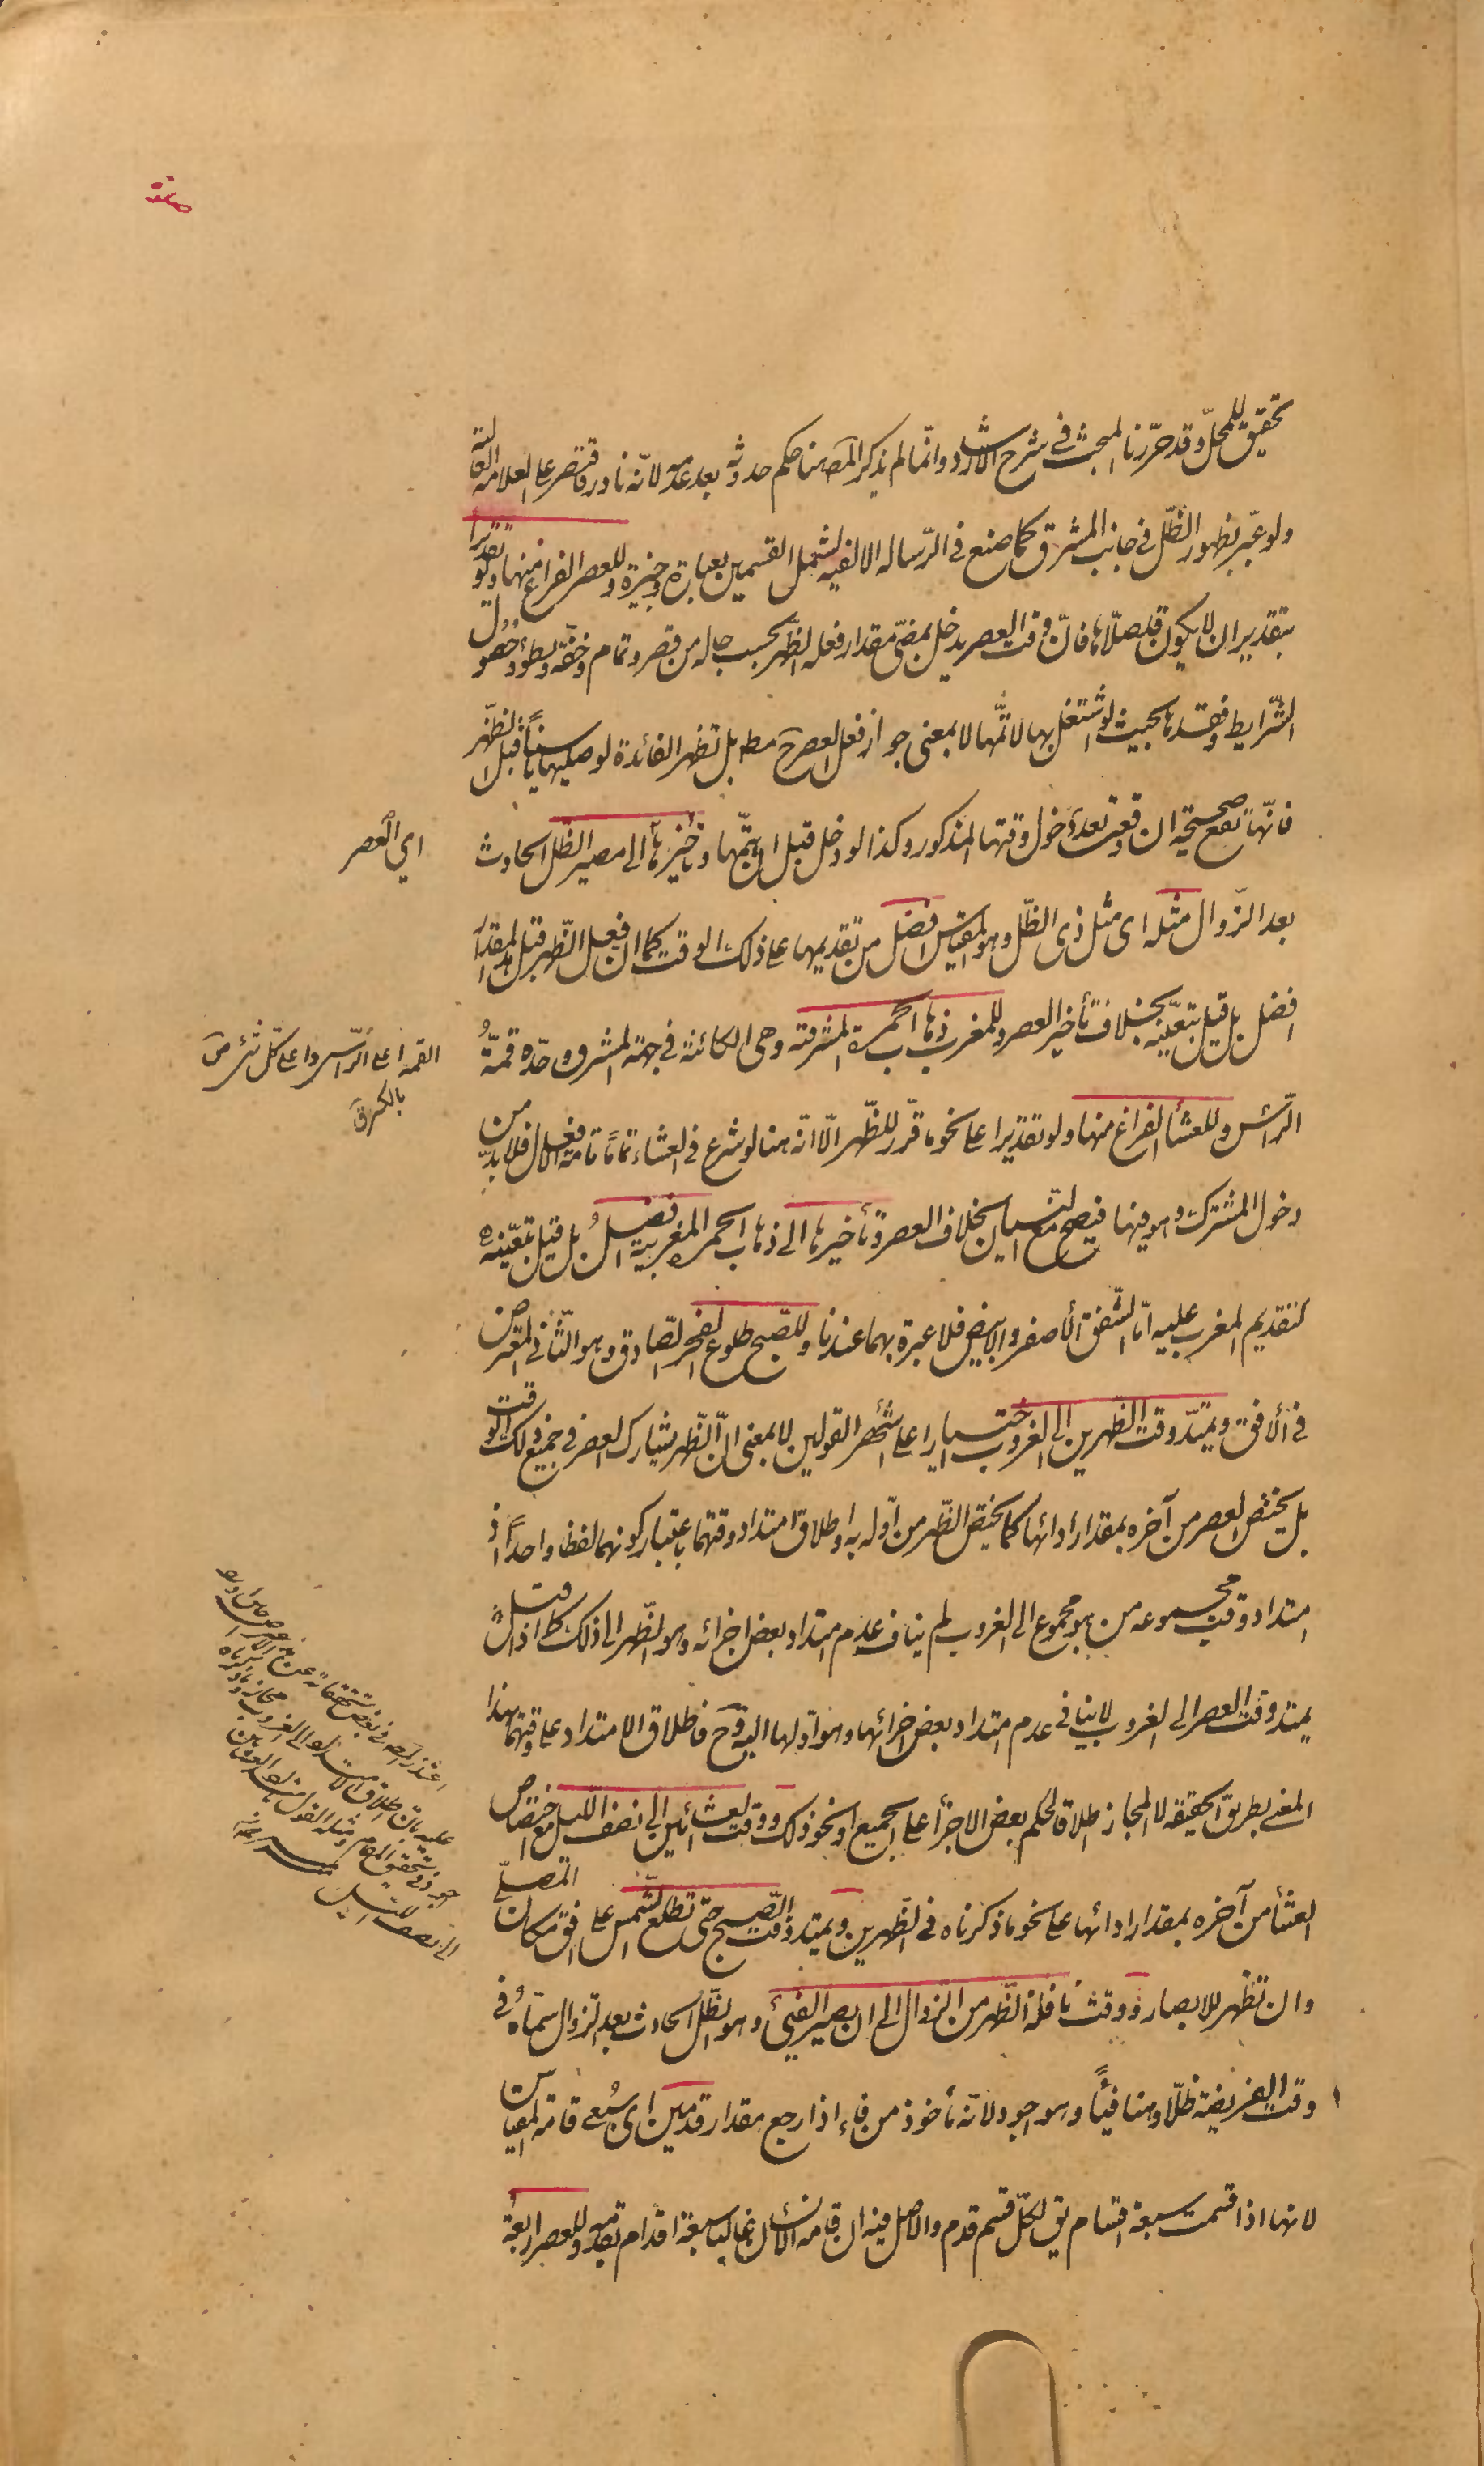 صلوة
تحقيق للمحلّ وقد حرّرنا المبحث في شرح الارشاد وانّما لم يذكر المصَ هنا حكم حدوثه بعد عدمه لانّه نادر فاقتصر على العلامة الغالبة
ولو عبّر بظهور الظّل في جانب المشرق كما صنع في الرّساله الالفيه لشمل القسمين بعبارة وجيزة وللعصر الفراغ منها ولو تقديراً
بتقدير ان لا يكون قد صلّاها فانّ وقت العصر يدخل بمضىّ مقدار فعله الظّهر بحسب حاله من قصر وتمام وخفّة وبطوء وحصول
الشّرايط وفقدها بحيث لو اشتغل بها لاتمّها لا بمعنى جواز فعل العصر ح مط بل تظهر الفائدة لو صليها ناسياً قبل الظّهر
فانّها تقع صحيحة ان وقعت بعد دخول وقتها المذكور وكذا لو دخل قبل ان يتمّها وتأخيرها الى مصير الظّل الحادث
اي العصر
بعد الزّوال مثله اى مثل ذى الظّل وهو المقياس افضل من تقديمها على ذلك الوقت كما ان فعل الظّهر قبل هذا المقدار
افضل بل قيل بتعيّنه بخلاف تأخير العصر وللمغرب ذهاب الحمرة المشرقية وهى الكائنة في جهة المشرق وحدّه قمّةُ
القمة اعلى الرّاس واعلى كلّ شئ مَن
بالكسر ق
الرّأس وللعشأ الفراغ منها ولو تقديرا على نحو ما قرّر للظّهر الّا انّه هنا لو شرع في العشاء تماماً تامة الافعال فلا بدّ من
دخول المشترك وهو فيها فيصح مع النّسيان بخلاف العصر وتأخيرها الى ذهاب الحمرة المغربية افضلُ بل قيل بتعيّنه
كتقديم المغرب عليه امّا الشّفق الأصفر والابيض فلا عبرة بهما عندنا وللصّبح طلوع الفجر الصّادق وهو الثّاني المعترض
في الأفق ويمتدّ وقت الظّهرين الى الغروب اختيارا على اشهر القولين لا بمعنى انّ الظّهر يشارك العصر في جميع ذلك الوقت
بل يختص العصر من آخره بمقدار أدائها كما يختص الظّهر من اوّله به واطلاق امتداد وقتهما باعتبار كونهما لفظا واحداً اذ
امتداد وقت مجموعه من هو مجموع الى الغروب لم يناف عدم امتداد بعض اجزائه وهو الظّهر الى ذلك كما اذا قيل
يمتد وقت العصر الى الغروب لا ينافى عدم امتداد بعض اجزائها وهو اولها اليه وح فاطلاق الامتداد على وقتهما بهذا
المعنى بطريق الحقيقة لا المجاز اطلاقا لحكم بعض الاجزأ على الجميع او نحو ذلك ووقت العشائين الى نصف اللّيل مع اختصاص
العشأ من آخره بمقدار ادائها على نحو ما ذكرناه في الظّهرين ويمتد وقت الصّبح حتّى تطلع الشّمس على افق مكان المصلّى
وان تظهر للابصار ووقت نافلة الظّهر من الزوال الى ان يصير الفئ وهو الظّل الحادث بعد الزوال سمّاه في
وقت الفريضة ظلّا وهنا فيئاً وهو اجود لانّه مأخوذ من فاء اذا رجع مقدار قدمين اى سُبعى قامة المقياس
لانها اذا قسمت سبعة اقسام يق لكلّ قسم قدم والاصل فيه ان قامة الانسان غالبا سبعة اقدام بقدمه وللعصر اربعة